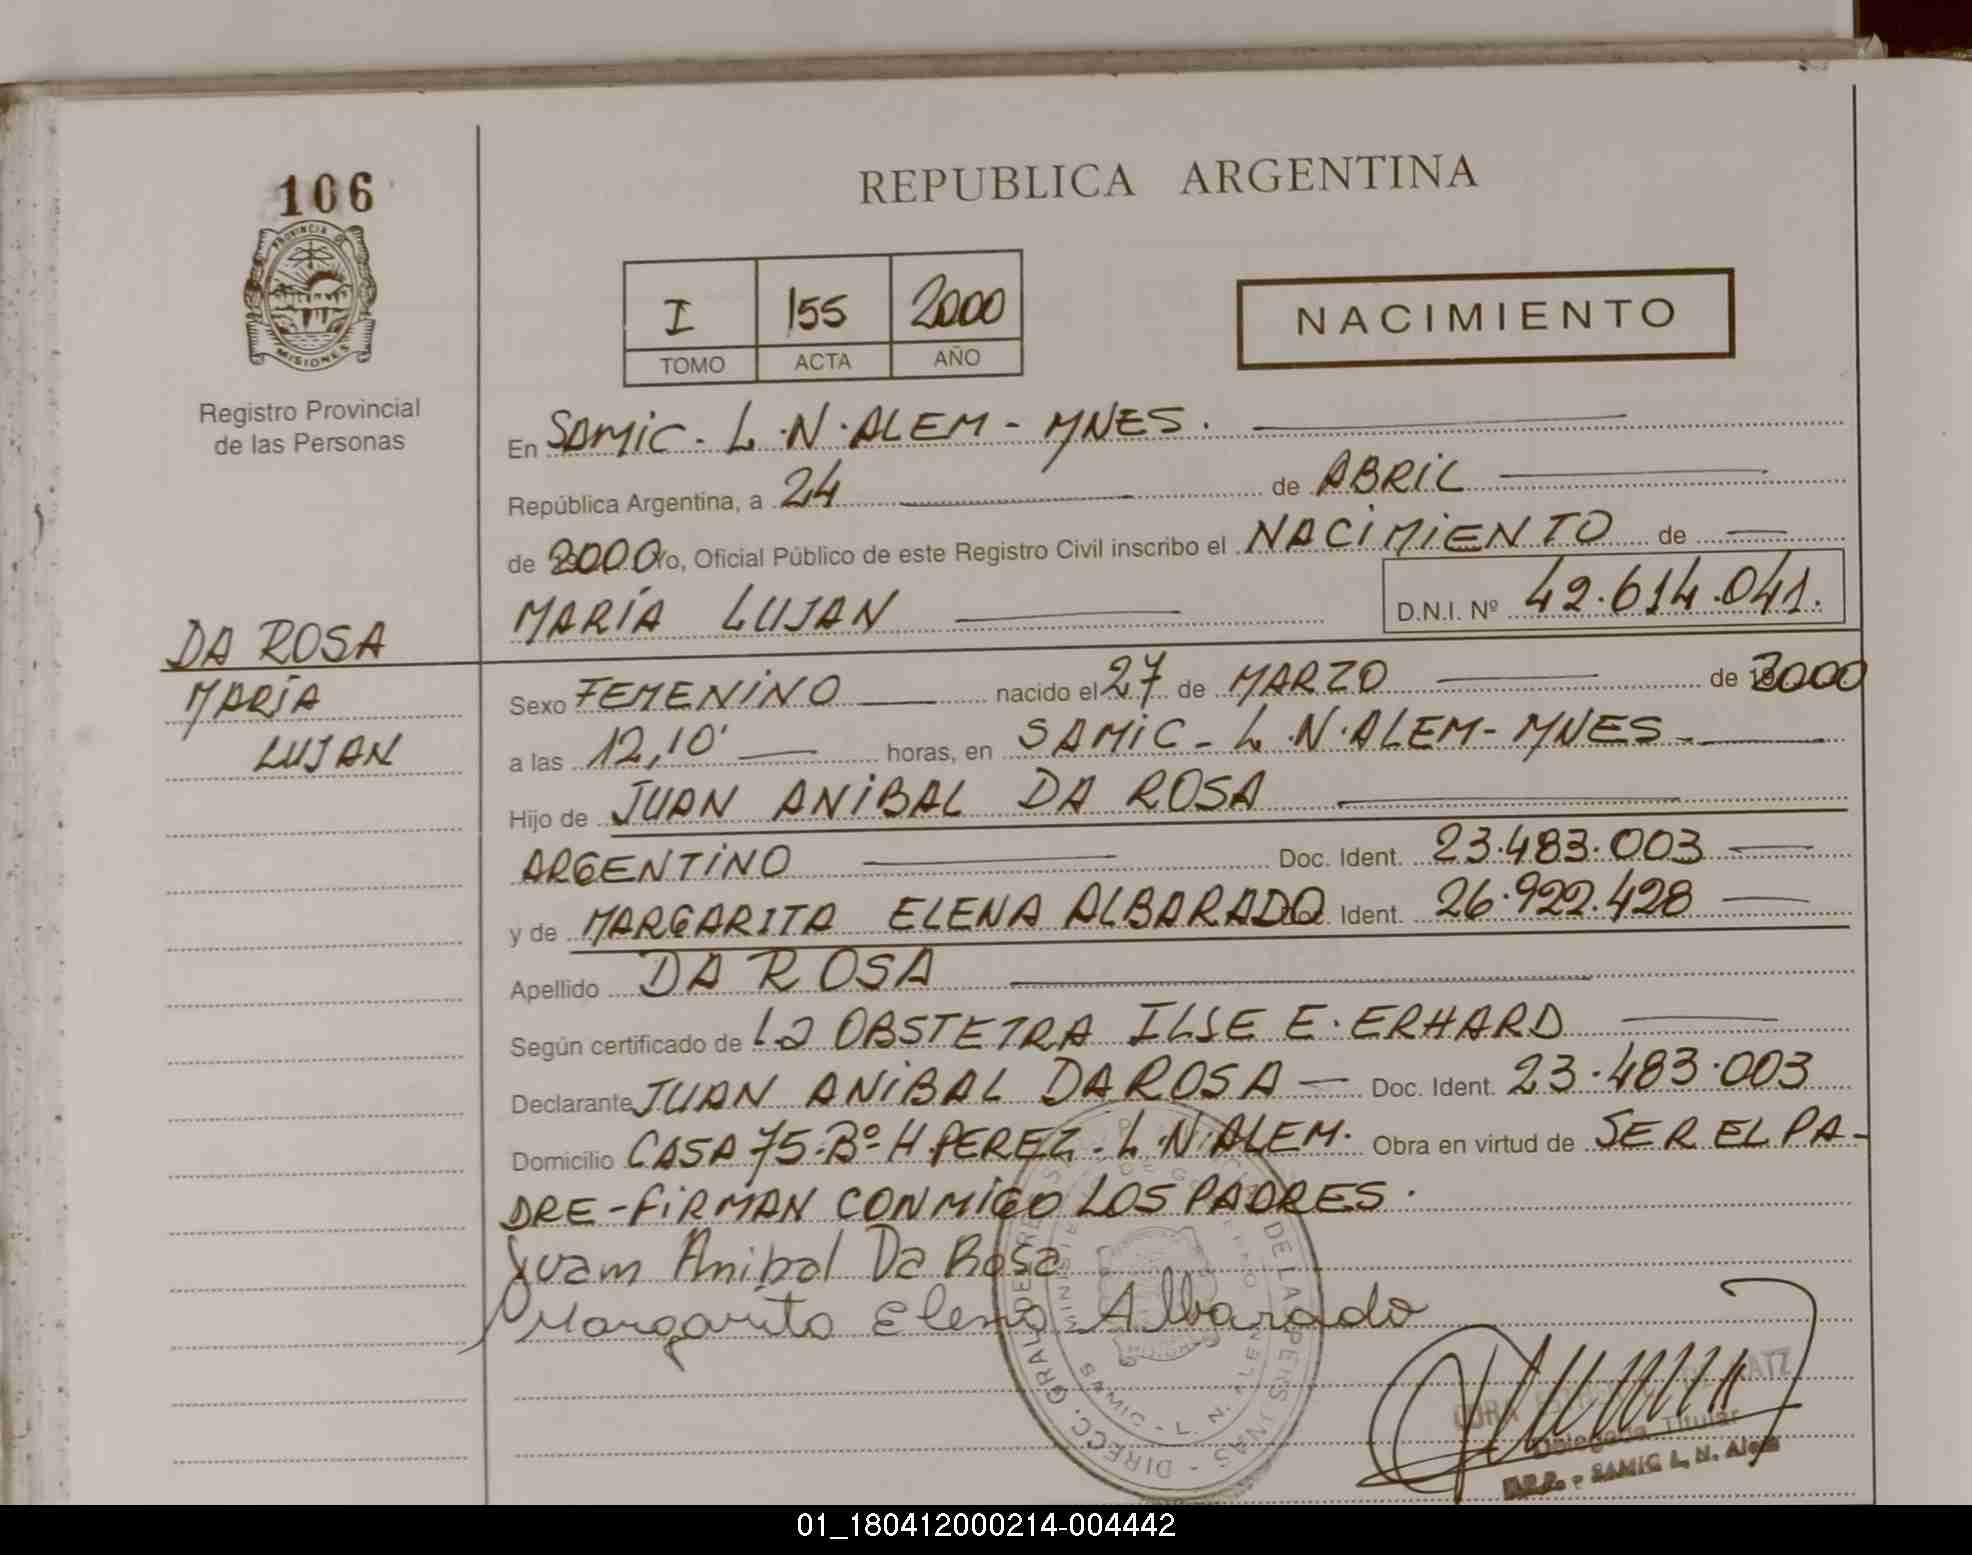 106
PROVINCIA DE
MISIONES
Registro Provincial
de las Personas
DA ROSA
MARÍA
LUJAN
REPUBLICA ARGENTINA
I 155 2000
TOMO ACTA AÑO
NACIMIENTO
En SAMIC - L.N. ALEM - MNES.
República Argentina, a 24 de ABRIL
de 2000 Yo, Oficial Público de este Registro Civil inscribo el NACIMIENTO de
MARÍA LUJAN D.N.I. Nº 42.614.041.
Sexo FEMENINO nacido el 27 de MARZO de 2000
a las 12,10' horas, en SAMIC - L.N. ALEM - MNES
Hijo de JUAN ANIBAL DA ROSA
ARGENTINO Doc. Ident. 23.483.003
y de MARGARITA ELENA ALBARADO Ident. 26.922.428
Apellido DA ROSA
Según certificado de La OBSTETRA ILSE E. ERHARD
Declarante JUAN ANIBAL DA ROSA Doc. Ident. 23.483.003
Domicilio CASA 75-Bº H. PEREZ - L.N. ALEM. Obra en virtud de SER EL PA-
DRE - FIRMAN CONMIGO LOS PADRES.
Juan Anibal Da Rosa
Margarita Elena Albarado
Delegada Titular
SAMIC L. N. Alem
01_180412000214-004442